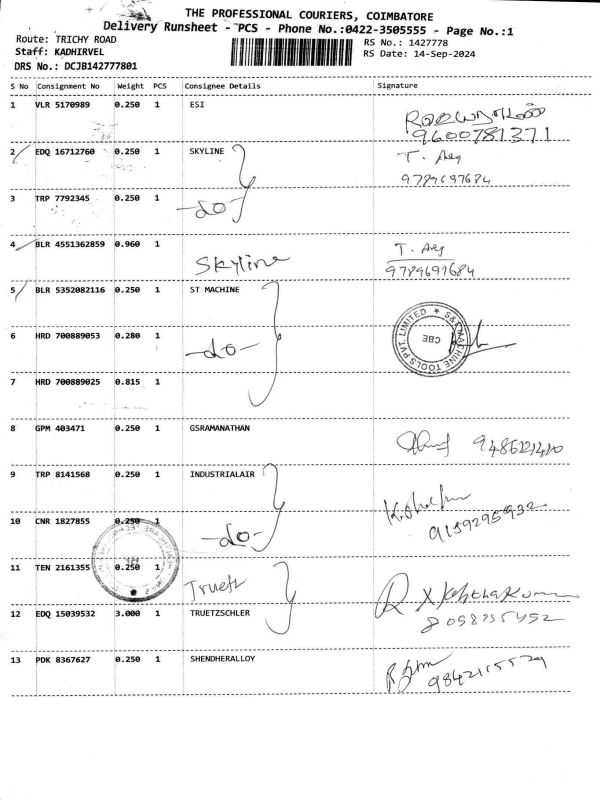 THE PROFESSIONAL COURIERS, COIMBATORE
Delivery Runsheet - PCS - Phone No.:0422-3505555 - Page No.:1
Route: TRICHY ROAD
RS No.: 1427778
Staff: KADHIRVEL
RS Date: 14-Sep-2024
DRS No.: DCJB142777801
S No Consignment No Weight PCS Consignee Details Signature
1 VLR 5170989 0.250 1 ESI
9600781371
2 EDQ 16712760 0.250 1 SKYLINE T.
9789697684
3 TRP 7792345 0.250 1 -do-
4 BLR 4551362859 0.960 1 Skyline T.
9789697684
5 BLR 5352082116 0.250 1 ST MACHINE
S&T MACHINE TOOLS PVT. LIMITED
CBE
6 HRD 700889053 0.280 1 -do-
7 HRD 700889025 0.815 1
8 GPM 403471 0.250 1 GSRAMANATHAN
9 TRP 8141568 0.250 1 INDUSTRIALAIR
10 CNR 1827855 0.250 1 -do- 9159295932
11 TEN 2161355 0.250 1 Truetz
12 EDQ 15039532 3.000 1 TRUETZSCHLER
13 PDK 8367627 0.250 1 SHENDHERALLOY